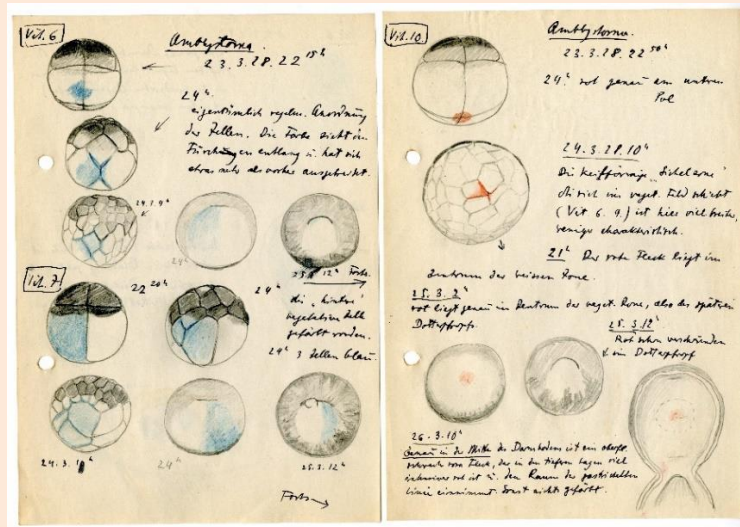 Vit. 6
Amblystoma.
23.3.28. 22 15h
24h
eigentümlich regelm. Anordnung
der Zellen. Die Farbe zieht in
Furchungen entlang u. hat sich
etwas mehr als vorher ausgebreitet.
24h
25.3. 12h Forts.
Vit. 7
22 20h
24h
die "hintere"
vegetative Zelle
gefärbt worden.
24h 3 Zellen blau.
24h
25.3. 12h
Forts.
Vit. 10
Amblystoma
23.3.28. 22 50h
24h rot genau am unteren
Pol
24.3.28. 10h
Die keilförmige
die sich ins veget. Feld schiebt
(Vit 6. 9.) ist hier viel breiter,
weniger charakteristisch.
21h Der rote Fleck liegt im
Zentrum der weissen Zone.
25.3. 2h
rot liegt genau im Zentrum der veget. Zone, also des späteren
Dotterpfropfs.
25.3. 12h
Rot schon verschwunden
im Dotterpfropf
26.3. 10h
Genau in der Mitte des Darmbodens ist ein
schwach rosa Fleck, der in den tieferen Lagen viel
intensiver rot ist u. den Raum der
Linie einnimmt. Sonst nichts gefärbt.